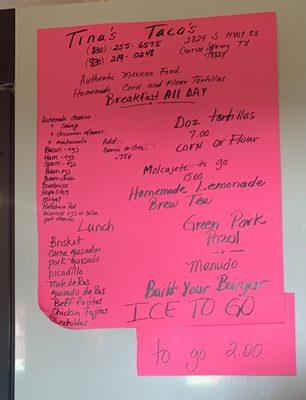 Tina's Tacos
(830)-255-6575
(830) 219-0248
2824 S HWY 83
TX
78834
Authentic Mexican Food
Homemade Corn and Flour Tortillas
Breakfast ALL DAY
Homemade chorizo
machacado
Bacon - egg
Ham - egg
Spam - egg
Bean egg
Bean chez
Nopalitos
migas
Add
Beans or chez
.75¢
Doz tortillas
7.00
corn or Flour
Molcajete to go
15.00
Homemade Lemonade
Brew Tea
Green Pork
Pozol
Menudo
Built Your Burger
ICE TO GO
Lunch
Brisket
Carne guisado
pork guisado
picadillo
guisado de Res
Beef Fajitas
Chicken fajitas
Enchiladas
to go 2.00